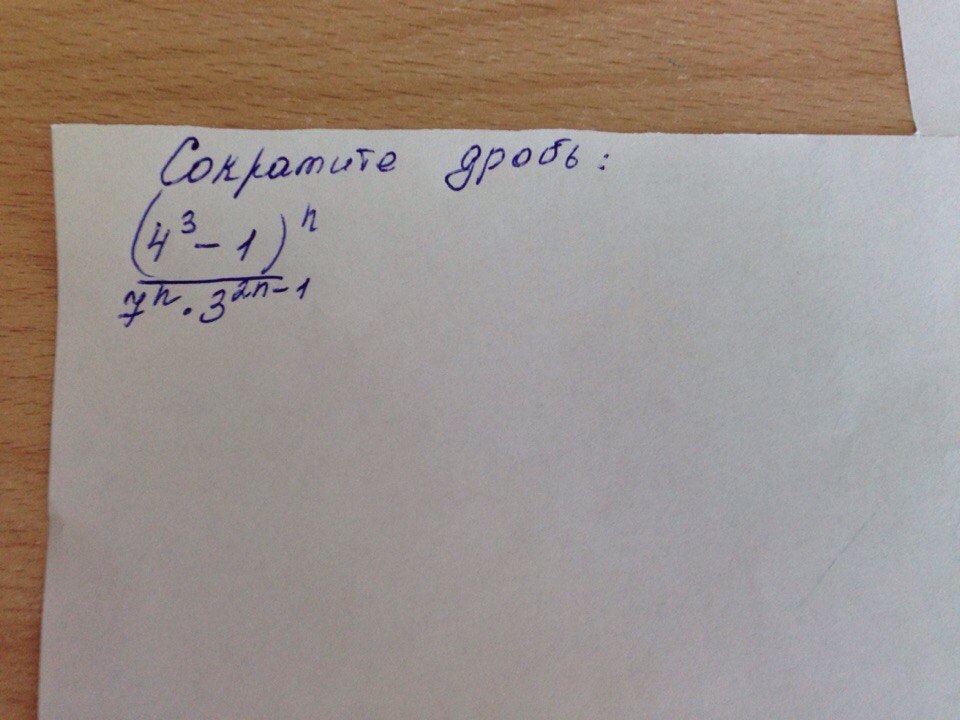 Сократите дробь:
(4³ - 1)ⁿ
7ⁿ · 3²ⁿ⁻¹